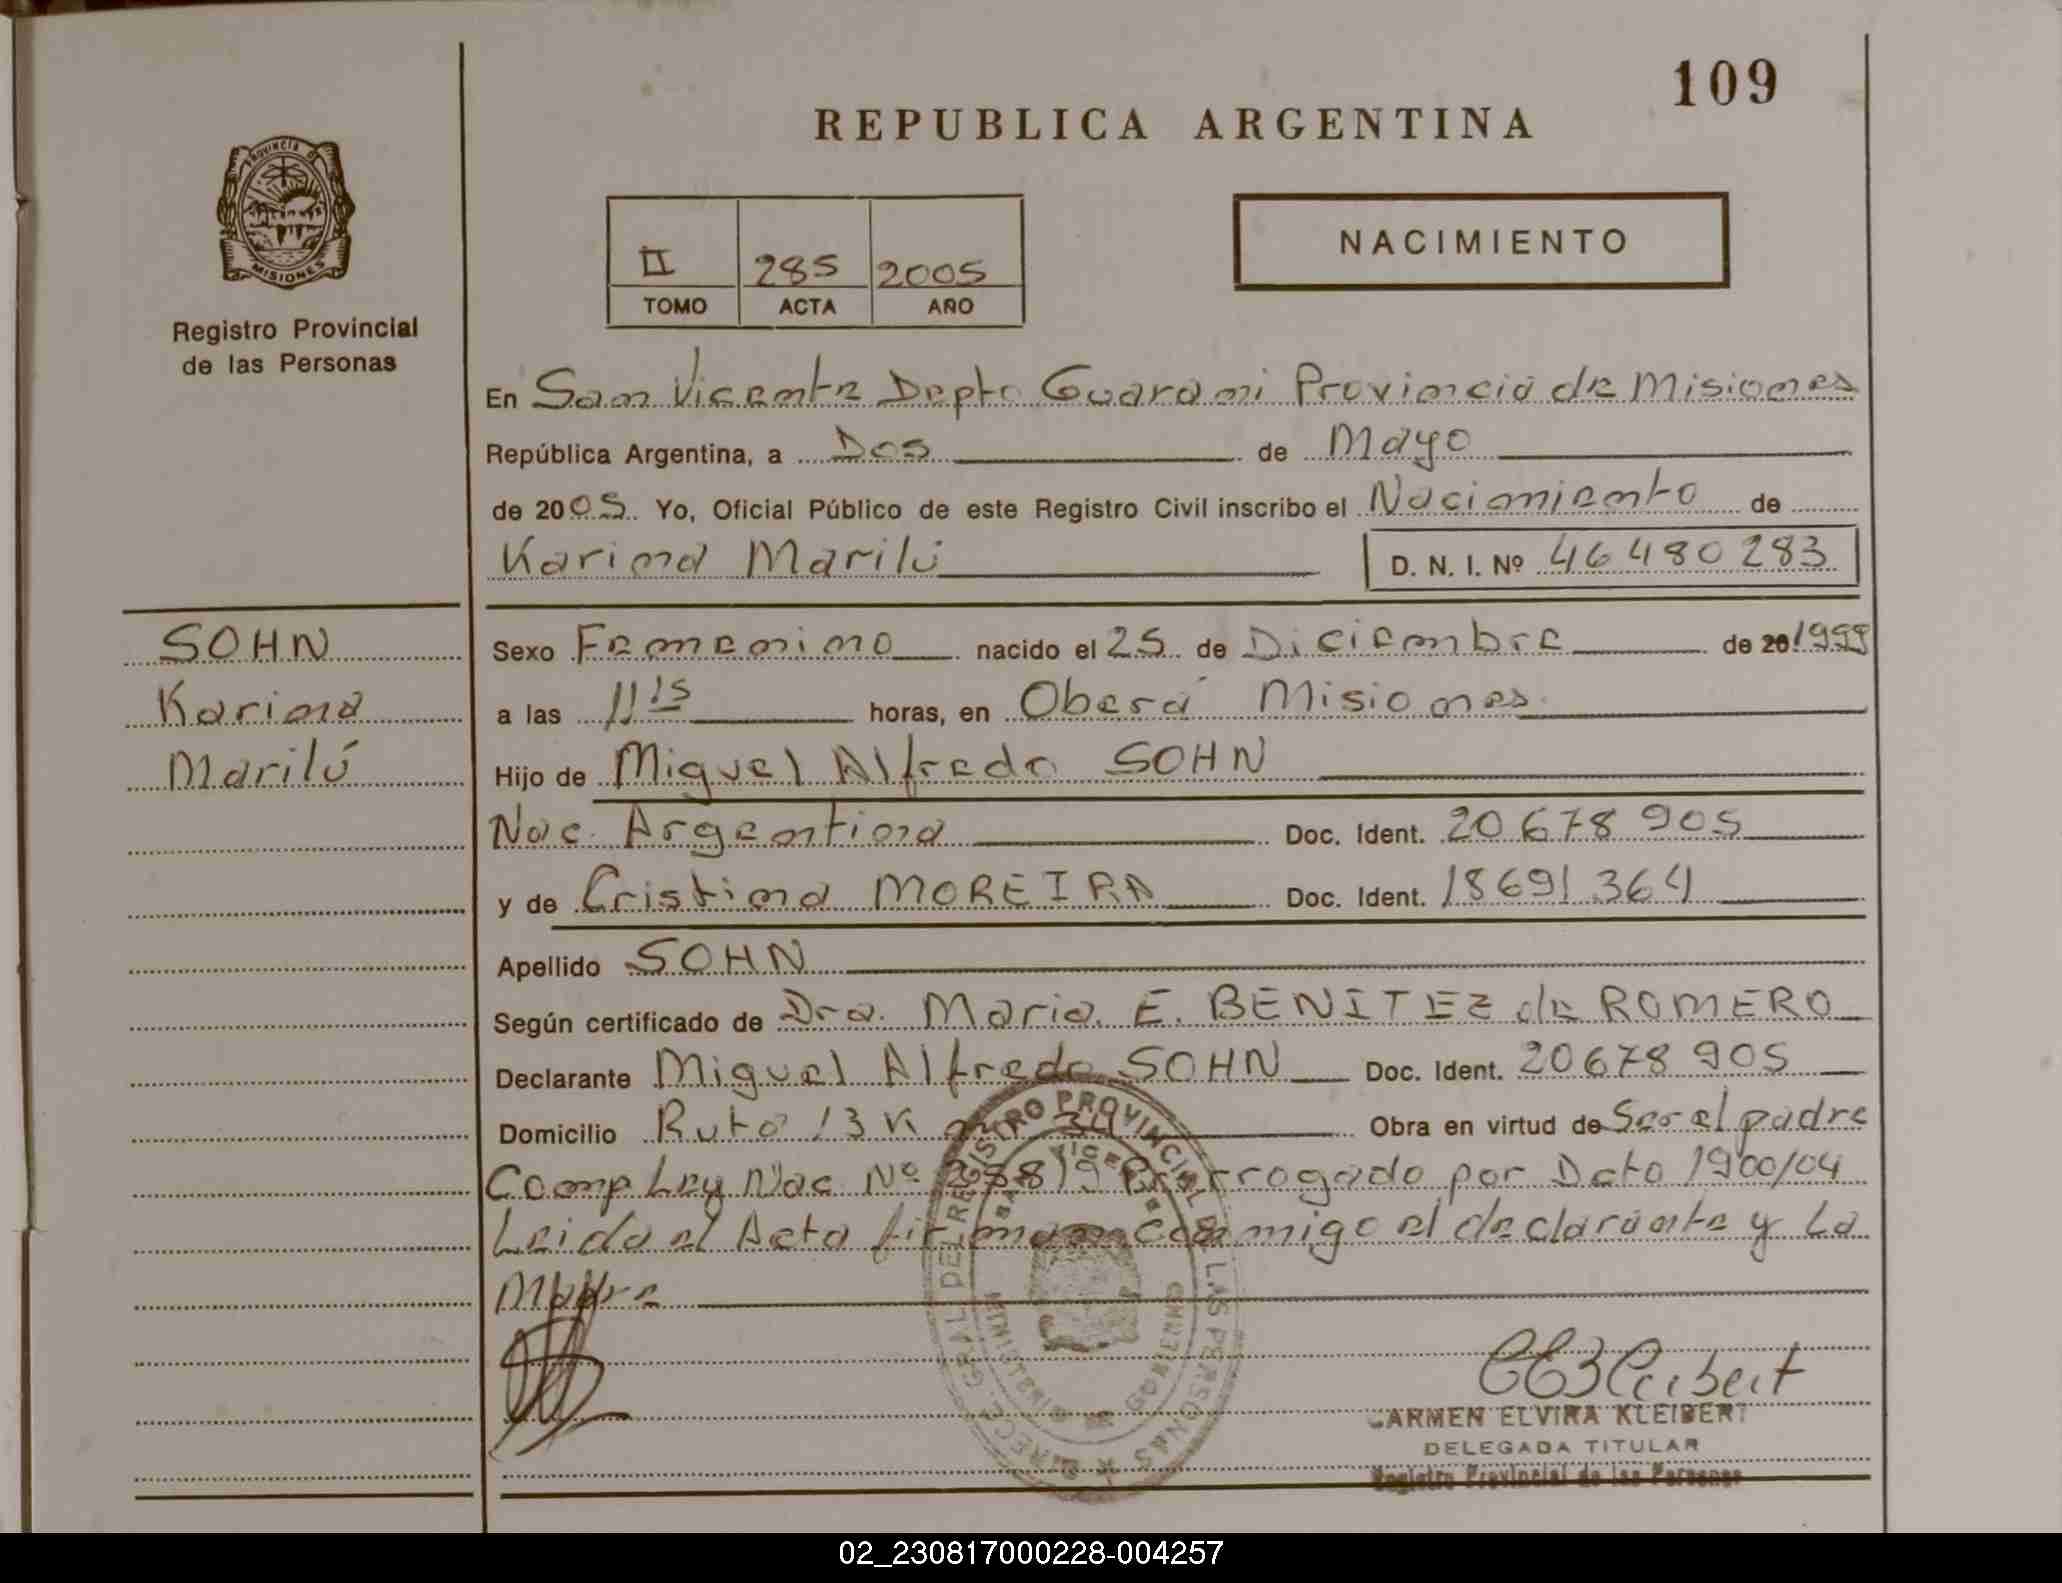 109
REPUBLICA ARGENTINA
PROVINCIA DE
MISIONES
Registro Provincial
de las Personas
II 285 2005
TOMO ACTA AÑO
NACIMIENTO
En San Vicente Depto Guarani Provincia de Misiones
República Argentina, a Dos de Mayo
de 2005. Yo, Oficial Público de este Registro Civil inscribo el Nacimiento de
Karina Marilú D. N. I. Nº 46480283
SOHN
Karina
Marilú
Sexo Femenino nacido el 25 de Diciembre de 20 1999
a las 11 15 horas, en Oberá Misiones
Hijo de Miguel Alfredo SOHN
Nac. Argentina Doc. Ident. 20678905
y de Cristina MOREIRA Doc. Ident. 18691364
Apellido SOHN
Según certificado de Dra. Maria. E. BENITEZ de ROMERO
Declarante Miguel Alfredo SOHN Doc. Ident. 20678905
Domicilio Ruta 13 K Obra en virtud de Ser el padre
Comp Ley Nac Nº Prorrogado por Dcto 1900/04
Leida el Acta firman conmigo el declarante y La
Madre
DIRECC. GRAL. DEL REGISTRO PROVINCIAL DE LAS PERSONAS
MINISTERIO DE GOBIERNO
CARMEN ELVIRA KLEIBERT
DELEGADA TITULAR
Registro Provincial de las Personas
02_230817000228-004257